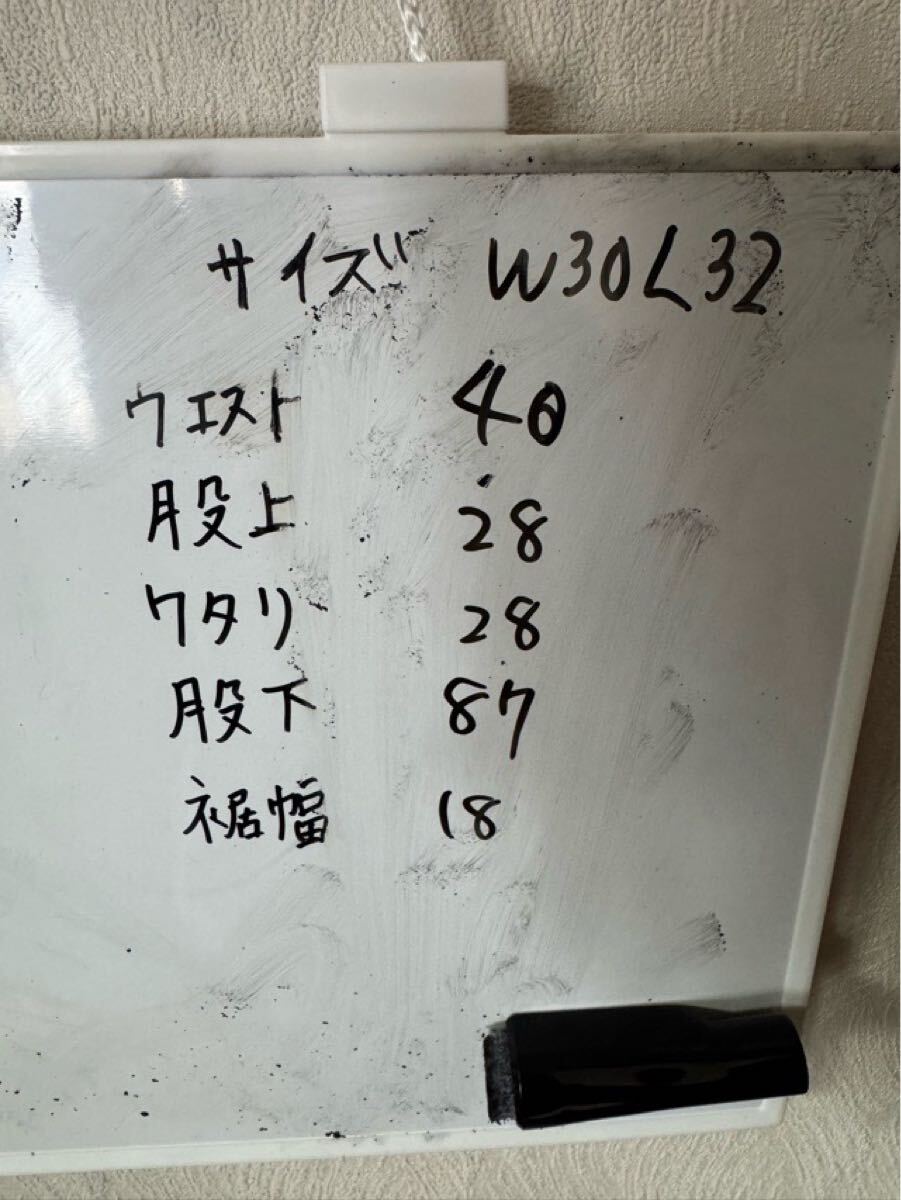 サイズ W30L32
ウエスト 40
股上 28
ワタリ 28
股下 87
裾幅 18